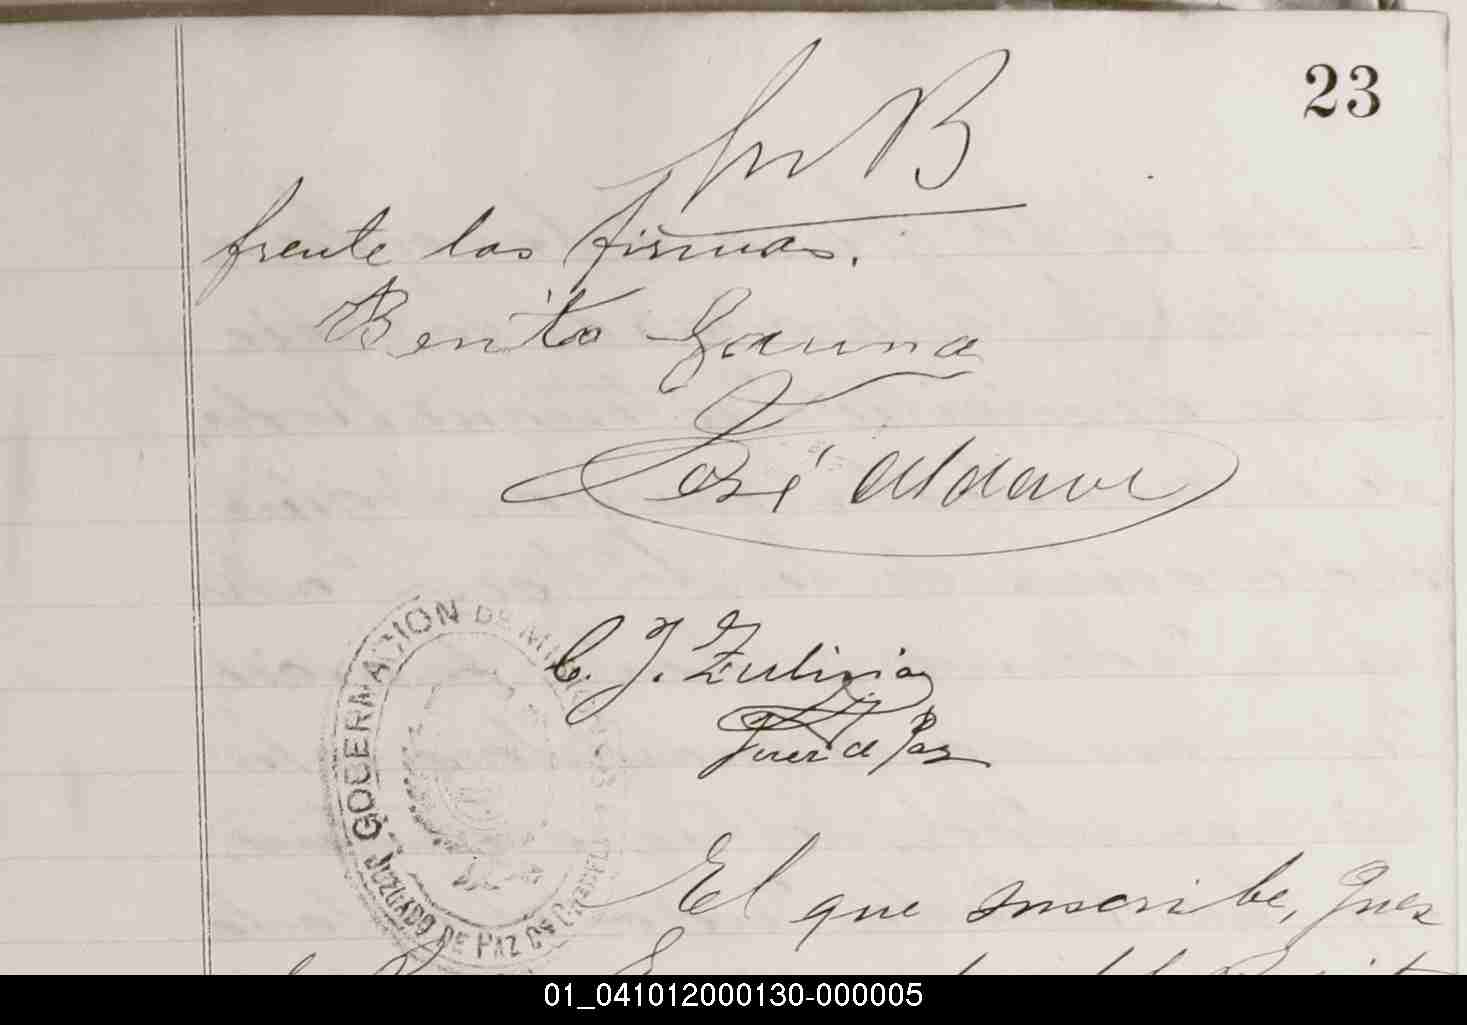 23
B
frente las firmas.
Benito Gauna
José Aldave
GOBERNACION DE MISIONES
C. J.
Juez de Paz
JUZGADO DE PAZ DE
El que suscribe, Juez
01_041012000130-000005